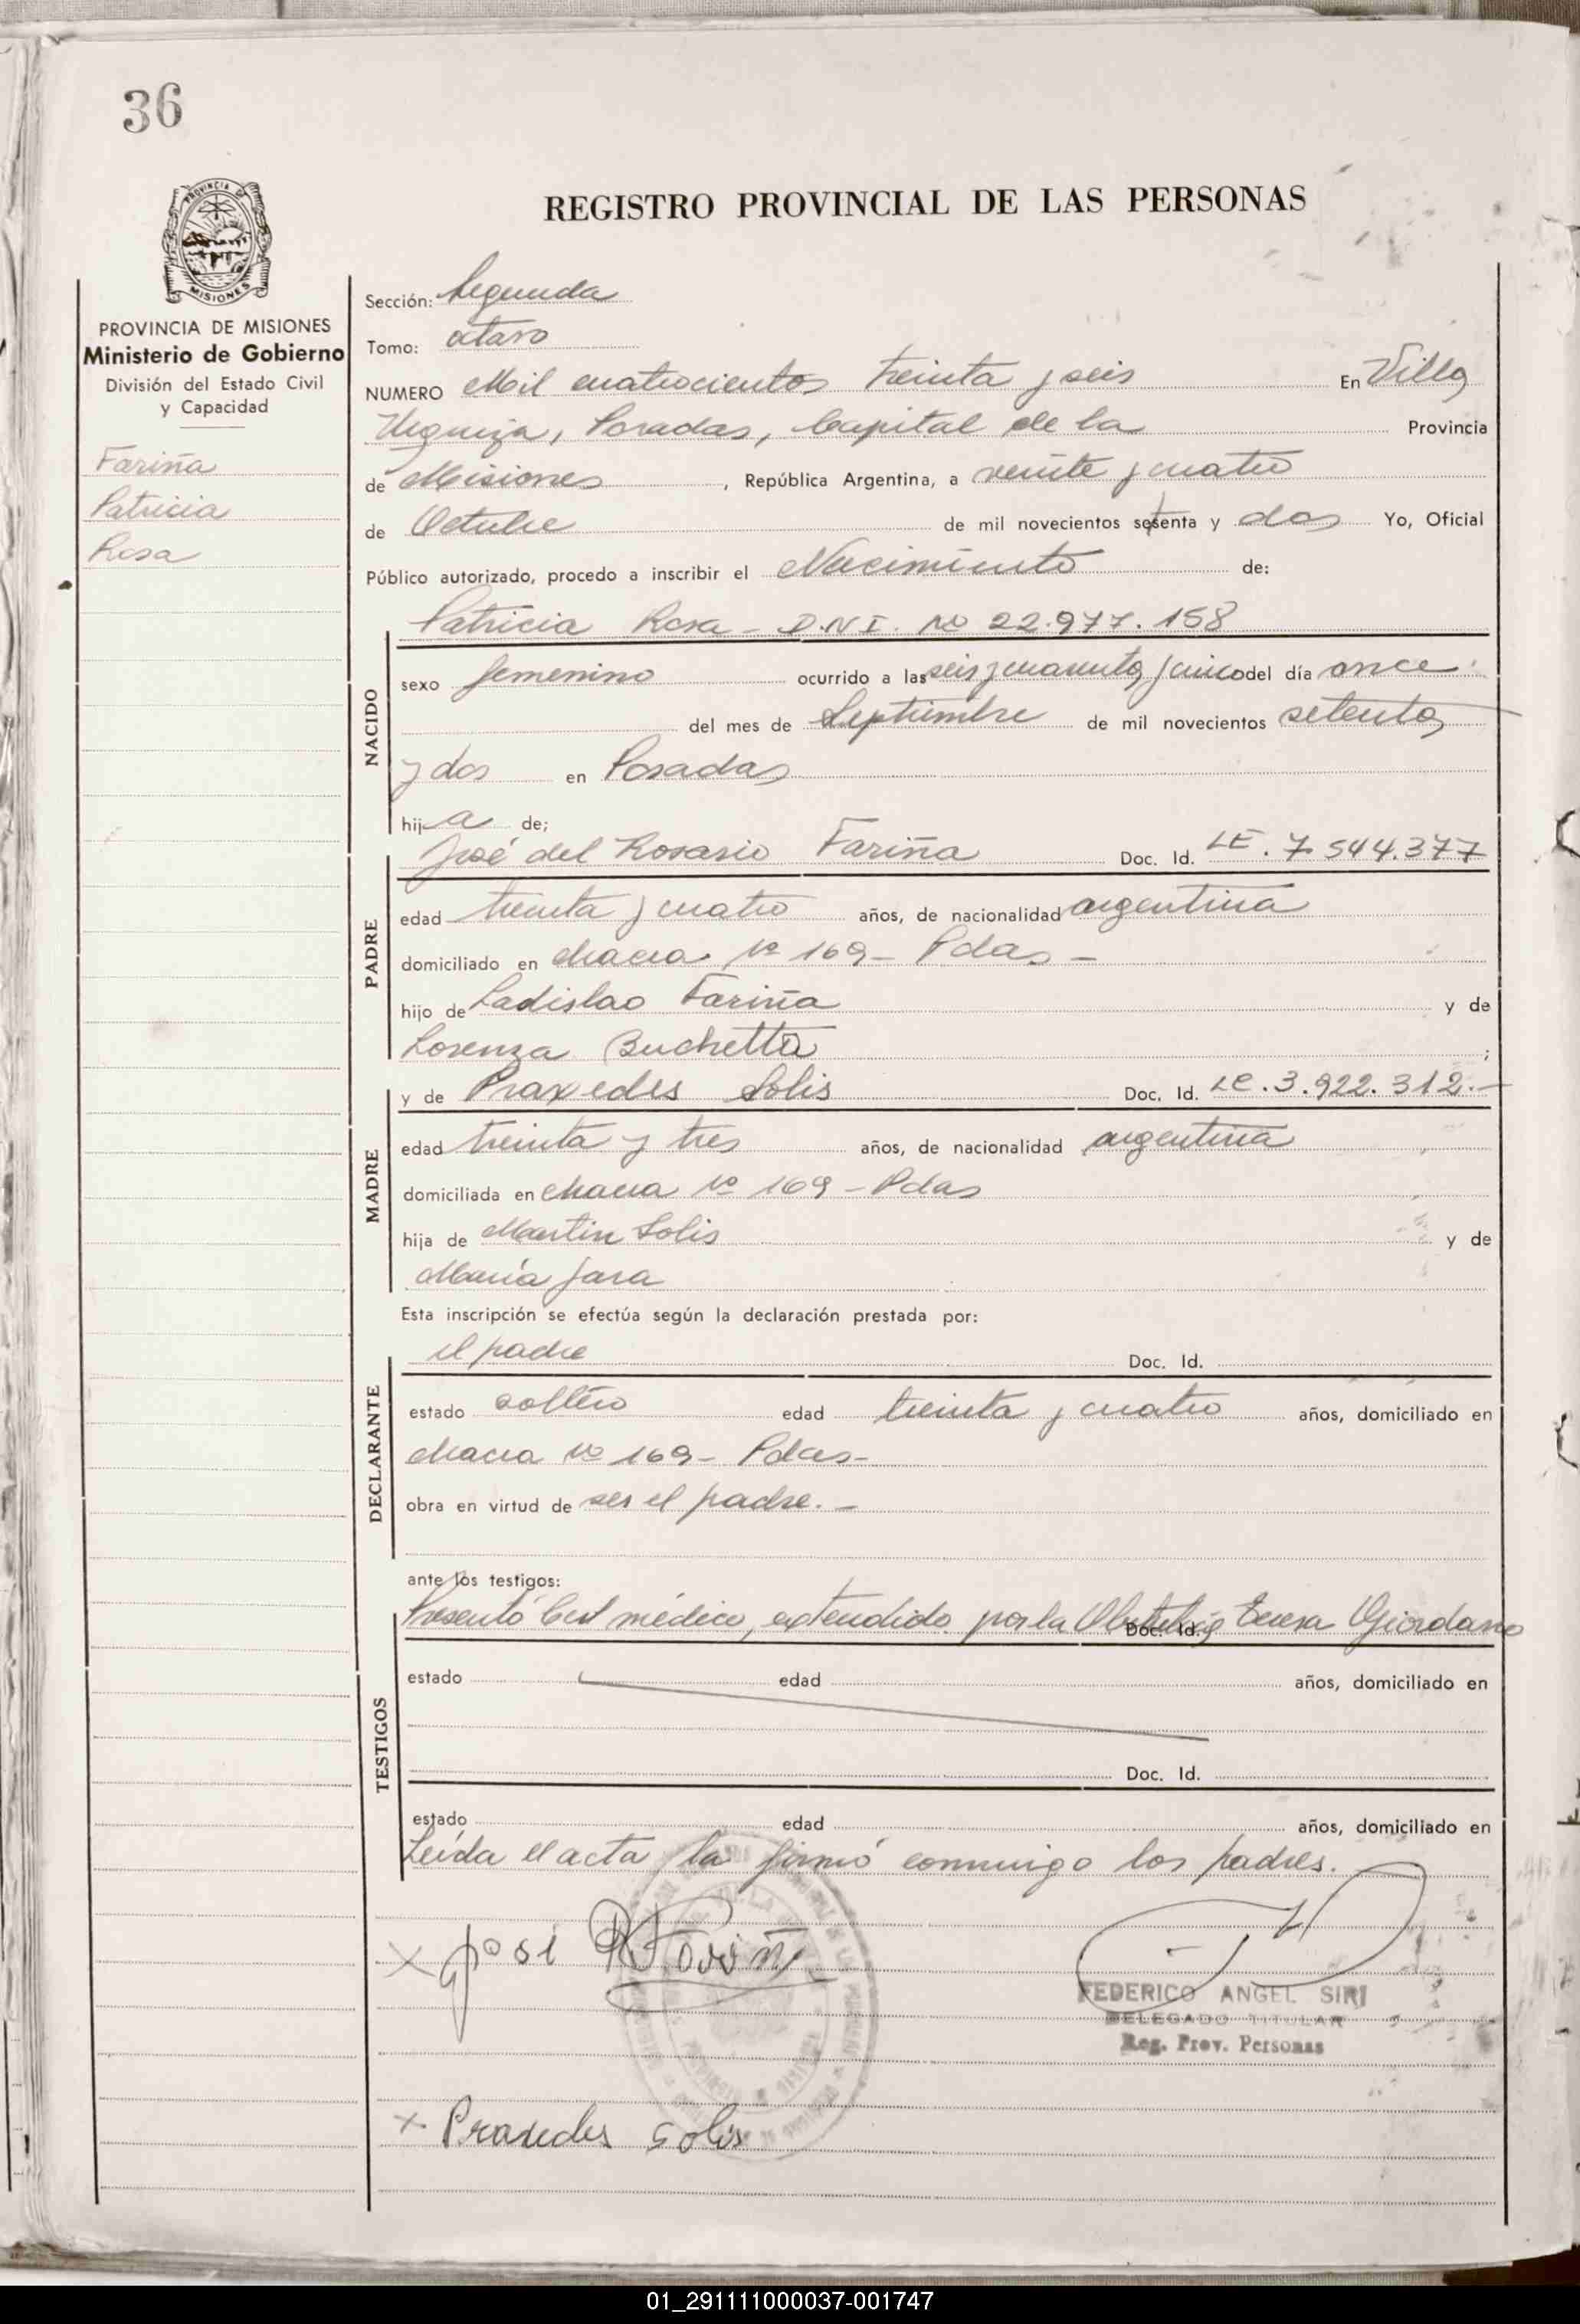 36
REGISTRO PROVINCIAL DE LAS PERSONAS
PROVINCIA DE
MISIONES
PROVINCIA DE MISIONES
Ministerio de Gobierno
División del Estado Civil
y Capacidad
Fariña
Patricia
Rosa
Sección: Segunda
Tomo: octavo
NUMERO Mil cuatrocientos treinta y seis En Villa
Urquiza, Posadas, Capital de la Provincia
de Misiones, República Argentina, a veinte y cuatro
de Octubre de mil novecientos setenta y dos Yo, Oficial
Público autorizado, procedo a inscribir el Nacimiento de:
Patricia Rosa - D.N.I. Nº 22.977.158
NACIDO
sexo femenino ocurrido a las seis y cuarenta y cinco del día once
del mes de Septiembre de mil novecientos setenta
y dos en Posadas
hija de;
José del Rosario Fariña Doc. Id. LE. 7.544.377
PADRE
edad treinta y cuatro años, de nacionalidad argentina
domiciliado en chacra Nº 169 - Pdas -
hijo de Ladislao Fariña y de
Lorenza Buchetta ;
y de Praxedes Solis Doc. Id. LC. 3.922.312.-
MADRE
edad treinta y tres años, de nacionalidad argentina
domiciliada en chacra Nº 169 - Pdas
hija de Martin Solis y de
María Jara
Esta inscripción se efectúa según la declaración prestada por:
el padre Doc. Id.
DECLARANTE
estado soltero edad treinta y cuatro años, domiciliado en
chacra Nº 169 - Pdas -
obra en virtud de ser el padre. -
ante los testigos:
Presentó Cert médico, extendido por la Obstetriz Teresa Giordano
Doc. Id.
TESTIGOS
estado edad años, domiciliado en
Doc. Id.
estado edad años, domiciliado en
Leída el acta, la firmó conmigo los padres.
x José R Fariña
FEDERICO ANGEL SIRI
DELEGADO TITULAR
Reg. Prov. Personas
x Praxedes Solis
01_291111000037-001747